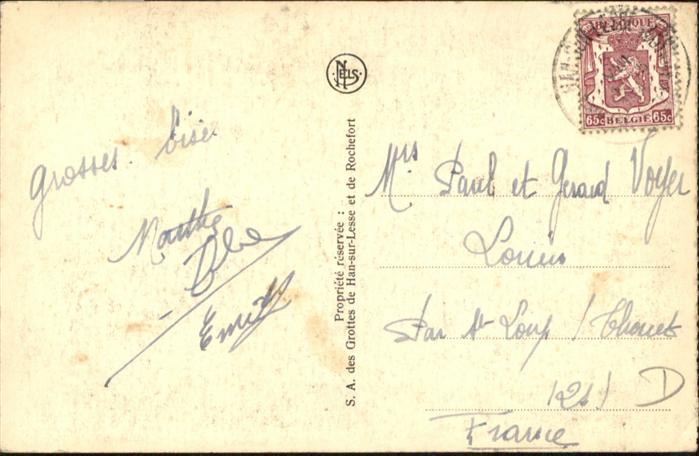 NELS
BELGIQUE
65c BELGIE 65c
Grosses bises
Marthe
Emile
Propriété réservée :
S. A. des Grottes de Han-sur-Lesse et de Rochefort
Mrs Paul et Gerard Voyer
Louin
Par St Loup / Thouet
France